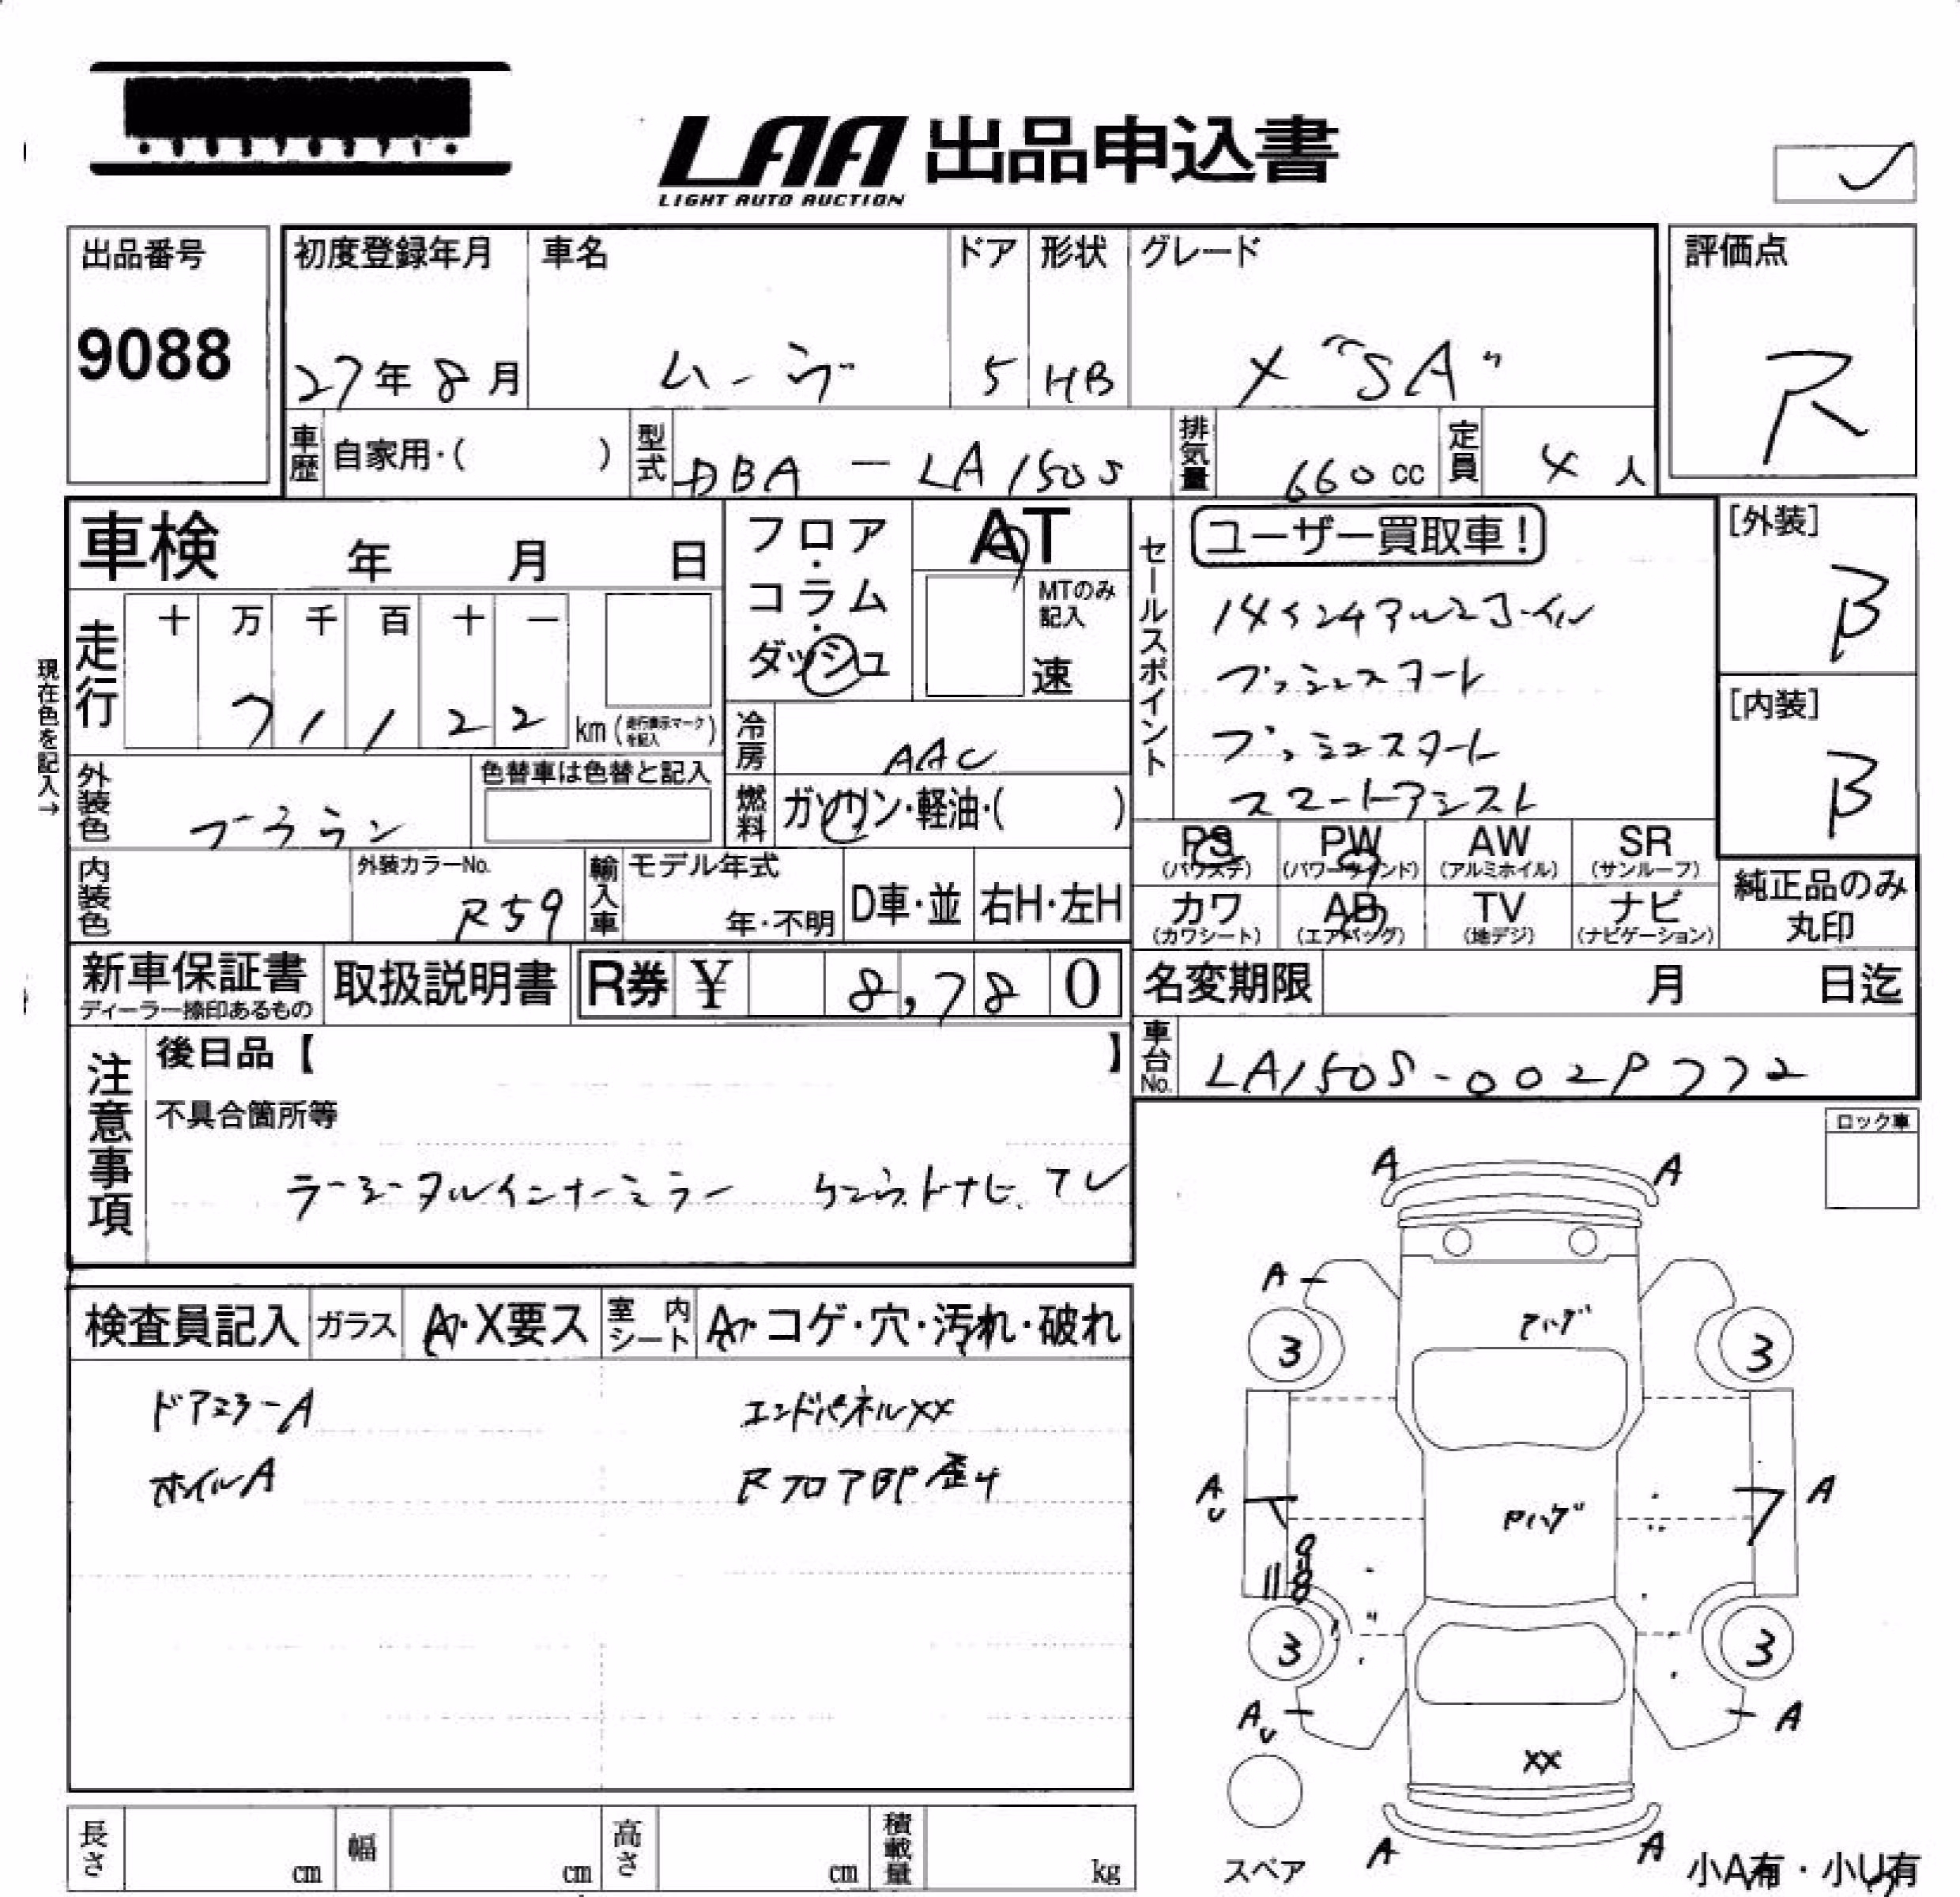 LAA 出品申込書
LIGHT AUTO AUCTION
出品番号
9088
初度登録年月
27年8月
車名
ムーヴ
ドア
5
形状
HB
グレード
X "SA"
評価点
R
車歴
自家用・( )
型式
DBA - LA150S
排気量
660 cc
定員
4人
車検 年 月 日
フロア・コラム・ダッシュ
AT
MTのみ記入
速
セールスポイント
ユーザー買取車!
14インチアルミホイル
プッシュスタート
プッシュスタート
スマートアシスト
[外装]
B
[内装]
B
現在色を記入→
走行
十 万 千 百 十 一
7 1 1 2 2
km (走行表示マークを記入)
冷房
AAC
外装色
ブラウン
色替車は色替と記入
燃料
ガソリン・軽油・( )
PS
(パワステ)
PW
(パワーウインド)
AW
(アルミホイル)
SR
(サンルーフ)
カワ
(カワシート)
AB
(エアバッグ)
TV
(地デジ)
ナビ
(ナビゲーション)
純正品のみ
丸印
内装色
外装カラーNo.
R59
輸入車
モデル年式
年・不明
D車・並
右H・左H
新車保証書
ディーラー捺印あるもの
取扱説明書
R券 ¥ 8,780
名変期限 月 日迄
車台No.
LA150S-0029772
注意事項
後日品【 】
不具合箇所等
ラージータルインナーミラー ケンウッドナビ、TV
ロック車
検査員記入
ガラス
A・X要ス
室内シート
A・コゲ・穴・汚れ・破れ
ドアミラーA
ホイルA
エンドパネルXX
RフロアBP歪サ
A A
A
ハゲ
3 3
AU
A
Pハゲ
3 3
AU
A
XX
A A
スペア
小A有・小U有
長さ cm
幅 cm
高さ cm
積載量 kg